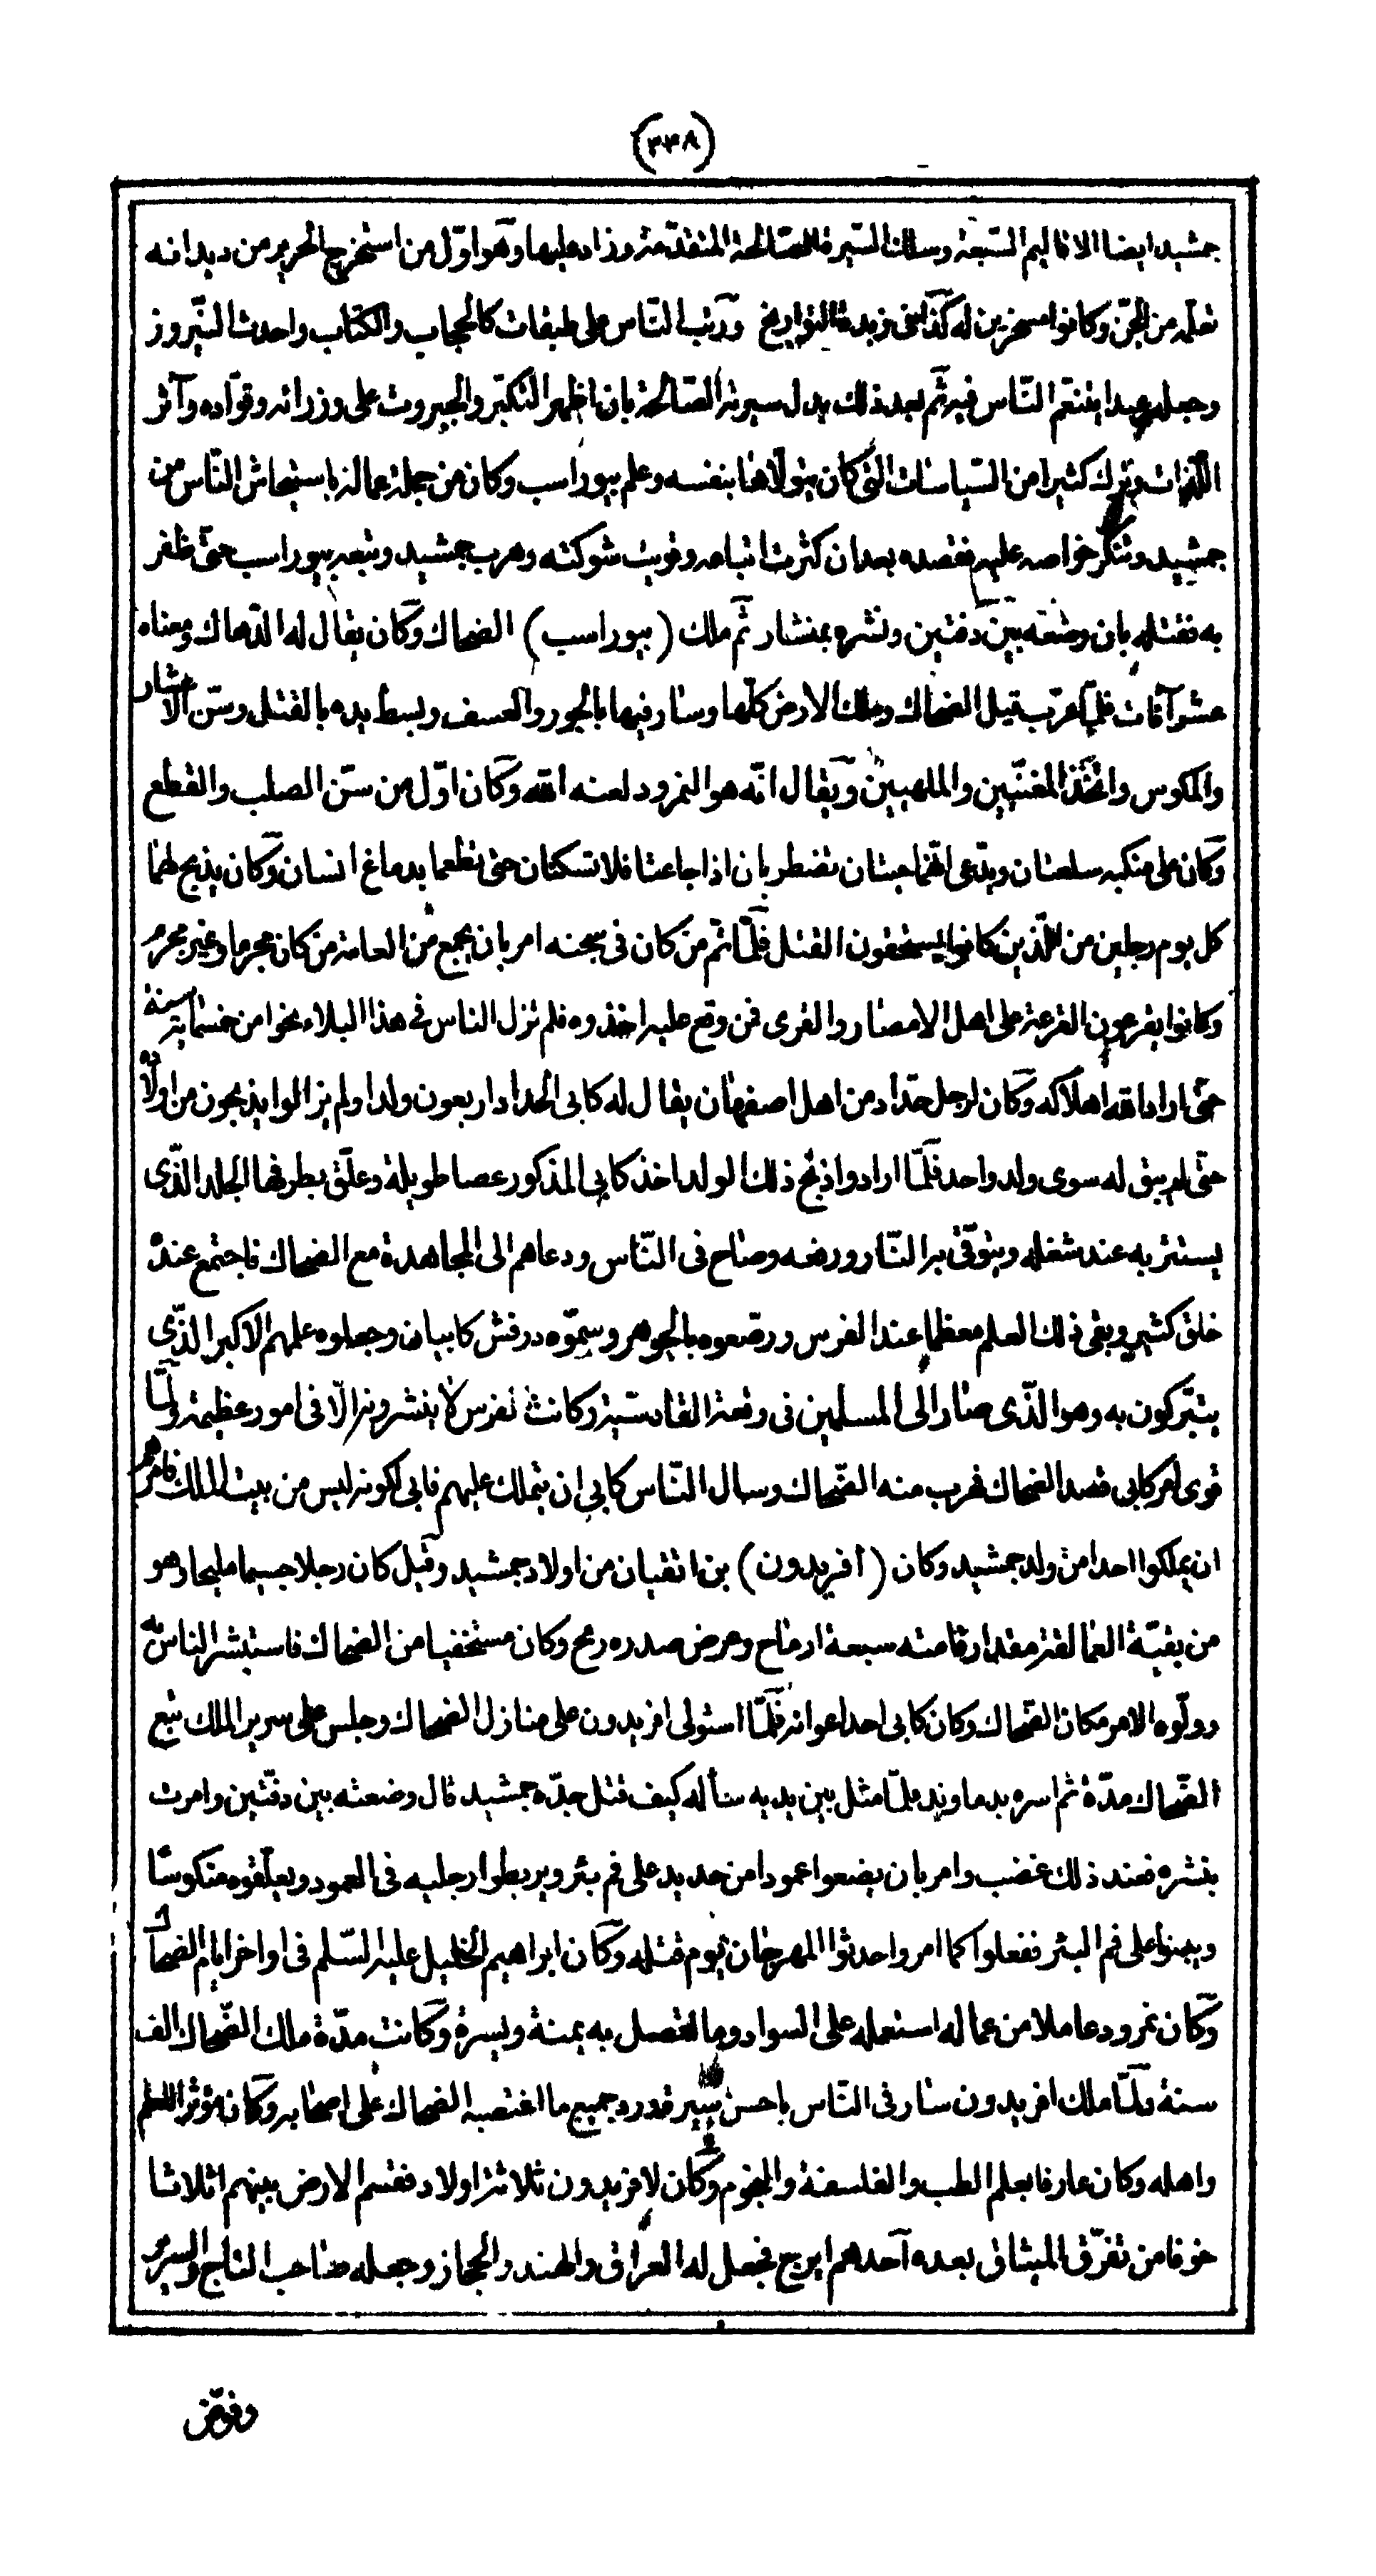 (٣٣٨)
جمشيد ايضا الاقاليم السّبعة وسلك السّيرة الصّالحة المتقدّمة وزاد عليها وهو اوّل من استخرج الحرير من ديدانه
تعلّمه من الجنّ وكانوا مسخرين له كذا فى زبدة التواريخ ورتب النّاس على طبقات كالحجاب والكتّاب واحدث النّيروز
وجعله عيدا يتنعّم النّاس فيه ثمّ بعد ذلك بدل سيرته الصّالحة بان اظهر التكبّر والجبروت على وزرائه وقوّاده وآثر
اللّذات وترك كثيرا من السّياسات الّتى كان يتولّاها بنفسه وعلم بيوراسب وكان من جملة عماله باستيحاش النّاس من
جمشيد وتنكّر خواصه عليه فقصده بعد ان كثرت اتباعه وقويت شوكته وهرب جمشيد وتبعه بيوراسب حتّى ظفر
به فقتله بان وضعه بين دفتين ونشره بمنشار ثمّ ملك (بيوراسب) الضحاك وكان يقال له الدّهاك ومعناه
عشر آفات فلمّا عرّب قيل الضحاك وملك الارض كلّها وسار فيها بالجور والعسف وبسط يده بالقتل وسّن الاعشار
والمكوس واتّخذ المغنّيين والملهيين ويقال انّه هو النمرود لعنه الله وكان اوّل من سّن الصلب والقطع
وكان على منكبه سلعتان ويدّعى انّهما حيتان تضطربان اذا جاعتا فلا تسكنان حتى تطعما بدماغ انسان وكان يذبح لهما
كل يوم رجلين من الّذين كانوا يستحقون القتل فلمّا تم من كان فى سجنه امر بان يجمع من العامة من كان مجرما وغير مجرم
وكانوا يقرعون القرعة على اهل الامصار والقرى فمن وقع عليه اخذوه فلم تزل الناس فى هذا البلاء نحوا من خمسمائة سنة
حتّى اراد الله اهلاكه وكان لرجل حدّاد من اهل اصفهان يقال له كابى الحداد اربعون ولدا ولم يزالوا يذبحون من اولاده
حتّى لم يبق له سوى ولد واحد فلمّا ارادوا ذبح ذلك الولد اخذ كابى المذكور عصا طويلة وعلّق بطرفها الجلد الّذى
يستتر به عند شغله ويتوقّى به النّار ورفعه وصاح فى النّاس ودعاهم الى المجاهدة مع الضحاك فاجتمع عنده
خلق كثير وبقى ذلك العلم معظما عند الفرس ورصّعوه بالجوهر وسمّوه درفش كابيان وجعلوه علمهم الاكبر الّذى
يتبّركون به وهو الّذى صار الى المسلمين فى وقعة القادسيّة وكانت الفرس لا ينشرونه الّا فى امور عظيمة ولمّا
قوى امر كابى قصد الضحاك فهرب منه الضّحاك وسال النّاس كابى ان يتملك عليهم فابى لكونه ليس من بيت الملك فامرهم
ان يملكوا احدا من ولد جمشيد وكان (افريدون) بن اثقيان من اولاد جمشيد وقيل كان رجلا جسيما مليحا وهو
من بقيّة العمالقة مقدار قامته سبعة ارماح وعرض صدره رمح وكان مستخفيا من الضحاك فاستبشر الناس به
وولّوه الامر مكان الضّحاك وكان كابى احد اعوانه فلمّا استولى افريدون على منازل الضحاك وجلس على سرير الملك تبع
الضّحاك مدّة ثم اسره بدماوند فلمّا مثل بين يديه سأله كيف قتل جدّه جمشيد قال وضعته بين دفّتين وامرت
بنشره فعند ذلك غضب وامر بان يضعوا عمودا من حديد على فم بئر ويربطوا رجليه فى العمود ويعلّقوه منكوسًا
ويبنوا على فم البئر ففعلوا كما امر واحدثوا المهرجان يوم قتله وكان ابراهيم الخليل عليه السّلم فى اواخر ايام الضحاك
وكان نمرود عاملا من عماله استعمله على السواد وما اتصل به يمنة ويسرة وكانت مدّة ملك الضّحاك الف
سنة ولمّا ملك افريدون سار فى النّاس باحسن سيرة ورد جميع ما اغتصبه الضحاك على اصحابه وكان مؤثر العلم
واهله وكان عارفا بعلم الطب والفلسفة والنجوم وكان لافريدون ثلاثة اولاد فقسم الارض بينهم اثلاثا
خوفا من تفرّق الميثاق بعده احدهم ايرج فجعل له العراق والهند والحجاز وجعله صاحب التاج والسرير
وفوّض